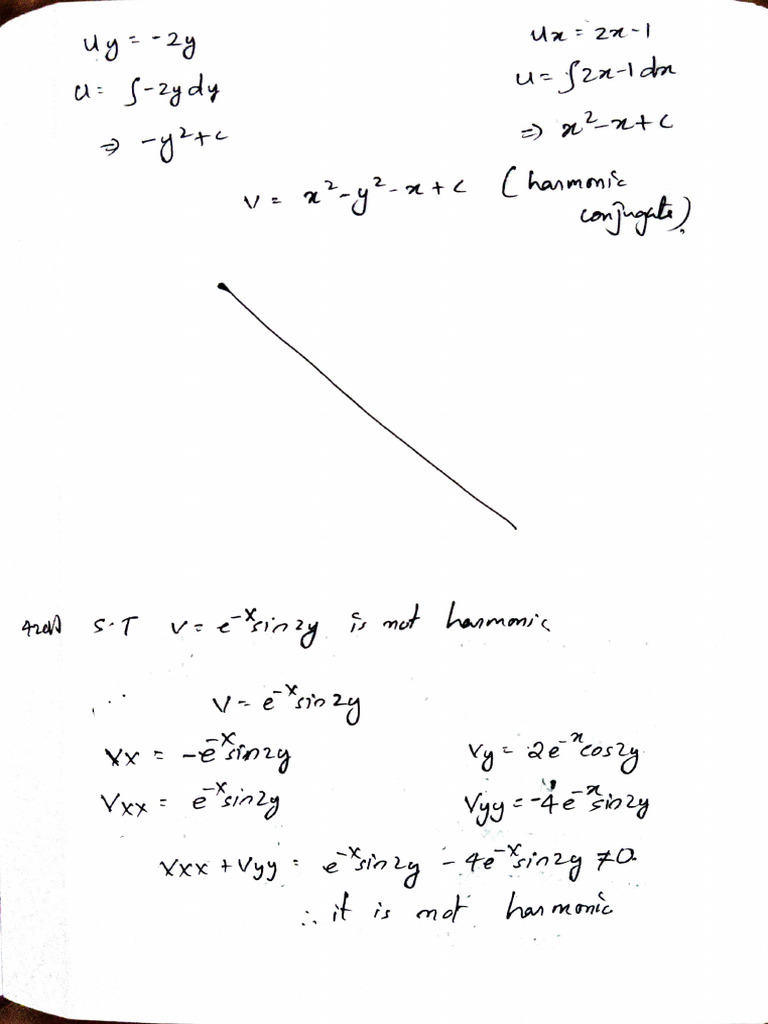 uy = -2y
u = ∫-2y dy
⇒ -y²+c
ux = 2x-1
u = ∫2x-1 dx
⇒ x²-x+c
v = x²-y²-x+c (harmonic
conjugate).
S.T v = e^-x sin2y is not harmonic
v = e^-x sin2y
vx = -e^-x sin2y
vxx = e^-x sin2y
vy = 2e^-x cos2y
vyy = -4e^-x sin2y
vxx + vyy = e^-x sin2y - 4e^-x sin2y ≠0.
∴ it is not harmonic